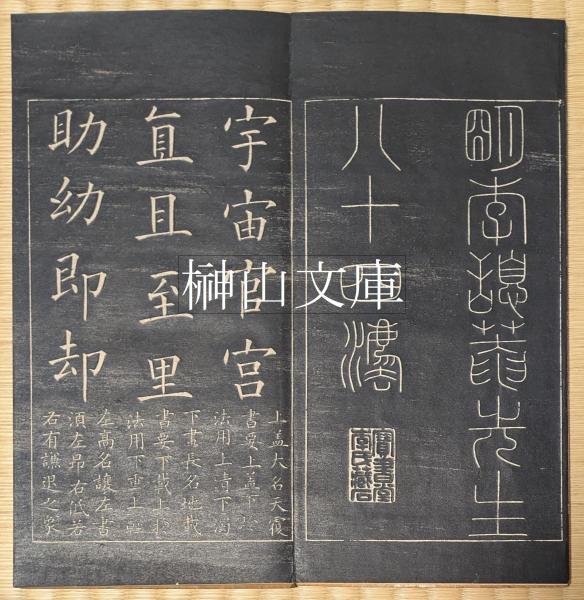 明李先生
八十四灋
宇宙官宮
直且至里
助幼即却
上蓋大名天覆
書要上蓋下
法用上清下濁
下畫長名地載
書要下載上
法用下重上輕
左高名讓左書
須左昂右低若
右有謙退之象
榊山文庫